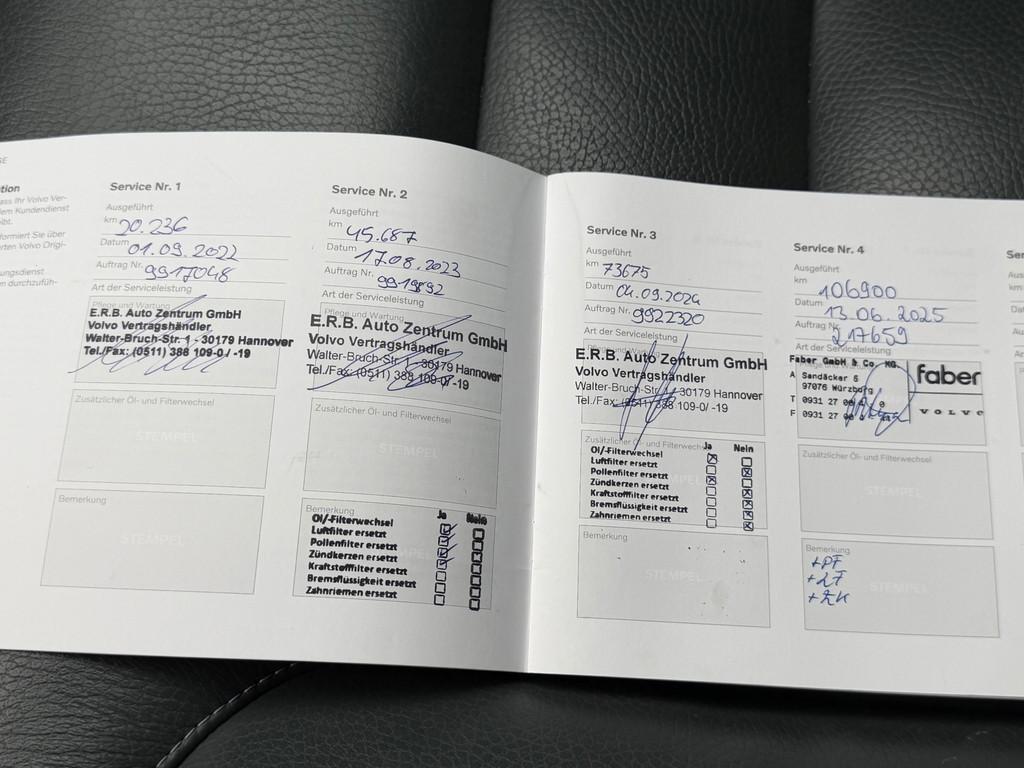 SE
tion
ass Ihr Volvo Ver-
em Kundendienst
eibt.
formiert Sie über
rten Volvo Origi-
ungsdienst
n durchzufüh-
Service Nr. 1
Ausgeführt
km 20.236
Datum 01.09.2022
Auftrag Nr. 9917048
Art der Serviceleistung
Pflege und Wartung
E.R.B. Auto Zentrum GmbH
Volvo Vertragshändler
Walter-Bruch-Str. 1 - 30179 Hannover
Tel./Fax: (0511) 388 109-0 / -19
Zusätzlicher Öl- und Filterwechsel
STEMPEL
Bemerkung
STEMPEL
Service Nr. 2
Ausgeführt
km 45.687
Datum 17.08.2023
Auftrag Nr. 9919892
Art der Serviceleistung
Pflege und Wartung
E.R.B. Auto Zentrum GmbH
Volvo Vertragshändler
Walter-Bruch-Str. 1 - 30179 Hannover
Tel./Fax: (0511) 388 109-0/ -19
Zusätzlicher Öl- und Filterwechsel
STEMPEL
Bemerkung
Ja Nein
Öl/-Filterwechsel
Luftfilter ersetzt
Pollenfilter ersetzt
Zündkerzen ersetzt
Kraftstofffilter ersetzt
Bremsflüssigkeit ersetzt
Zahnriemen ersetzt
Service Nr. 3
Ausgeführt
km 73675
Datum 04.09.2024
Auftrag Nr. 9922320
Art der Serviceleistung
E.R.B. Auto Zentrum GmbH
Volvo Vertragshändler
Walter-Bruch-Str. 1 - 30179 Hannover
Tel./Fax: (0511) 388 109-0/ -19
Zusätzlicher Öl- und Filterwechsel
Ja Nein
Öl/-Filterwechsel
Luftfilter ersetzt
Pollenfilter ersetzt
Zündkerzen ersetzt
Kraftstofffilter ersetzt
Bremsflüssigkeit ersetzt
Zahnriemen ersetzt
Bemerkung
STEMPEL
Service Nr. 4
Ausgeführt
km 106900
Datum 13.06.2025
Auftrag Nr. 217659
Art der Serviceleistung
Faber GmbH & Co. KG
A Sandäcker 5
97076 Würzburg
T 0931 27
F 0931 27
faber
VOLVO
Zusätzlicher Öl- und Filterwechsel
STEMPEL
Bemerkung
+PF
+LF
+ZK
STEMPEL